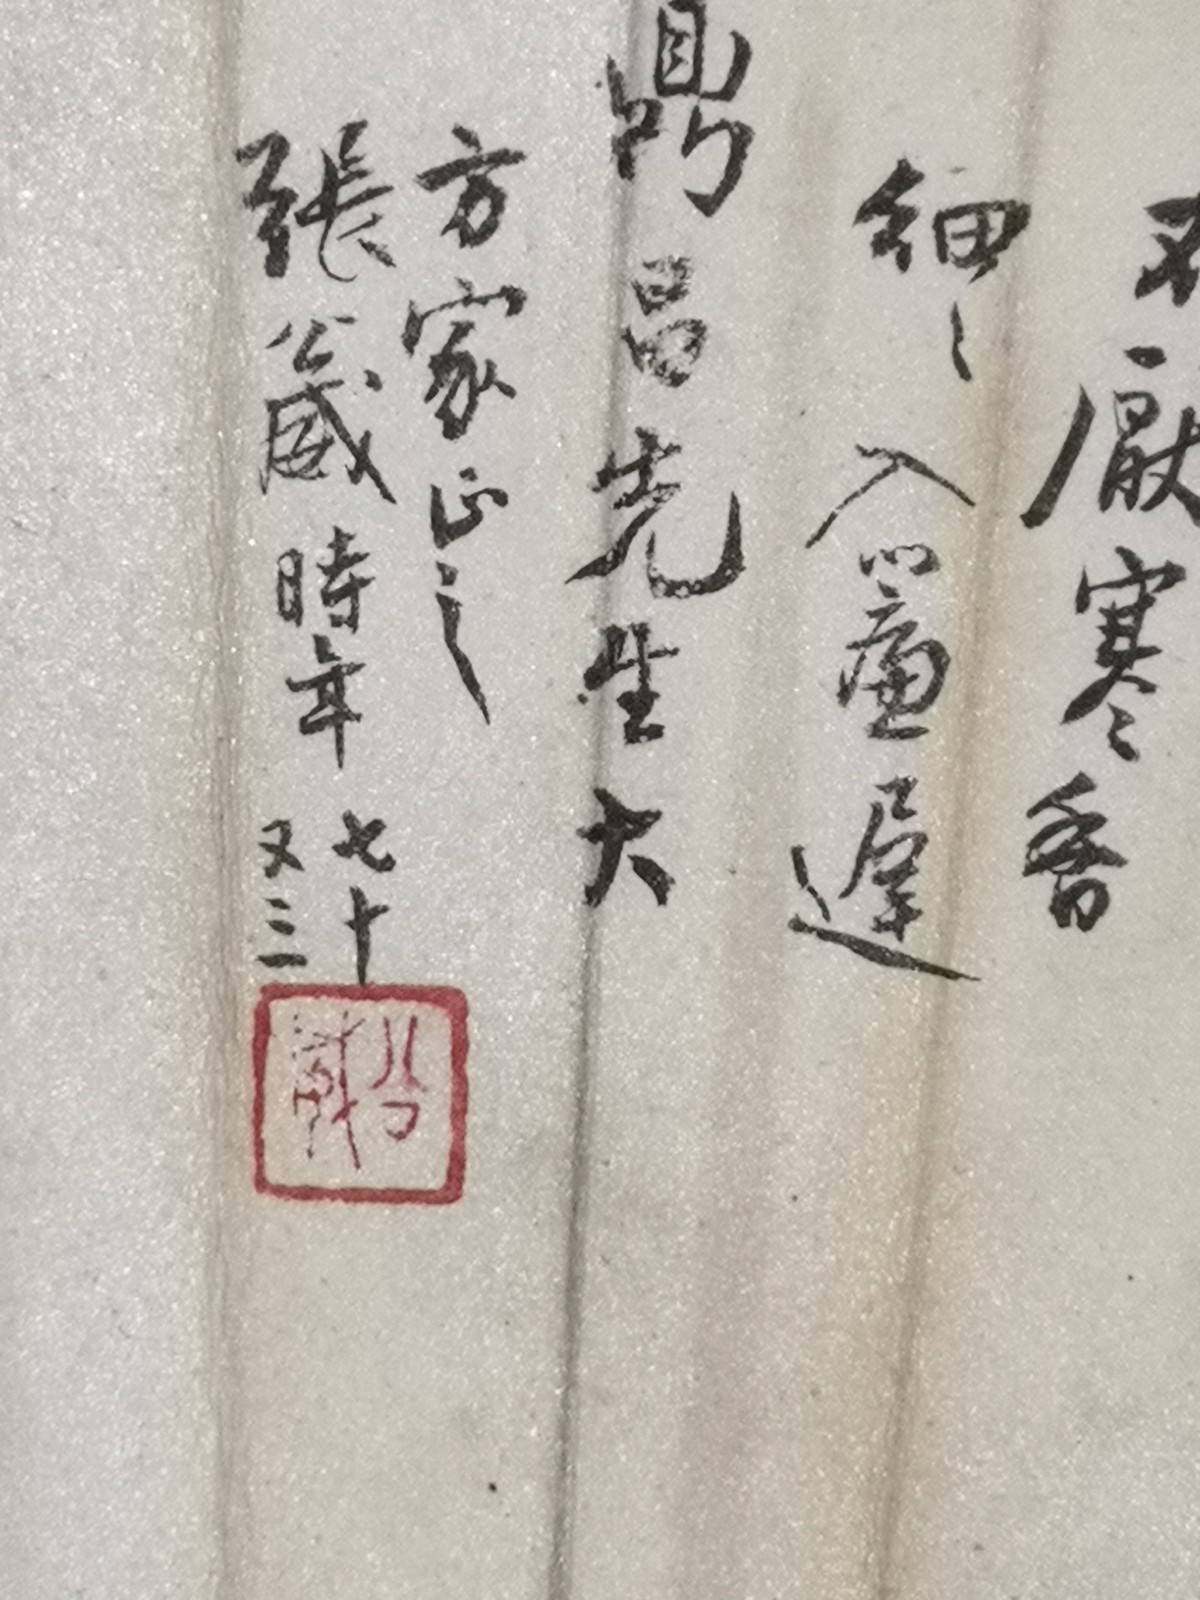 不厭寒香
細〻入簾遲
鼎昌先生大
方家正之
張公威時年七十又三
公威